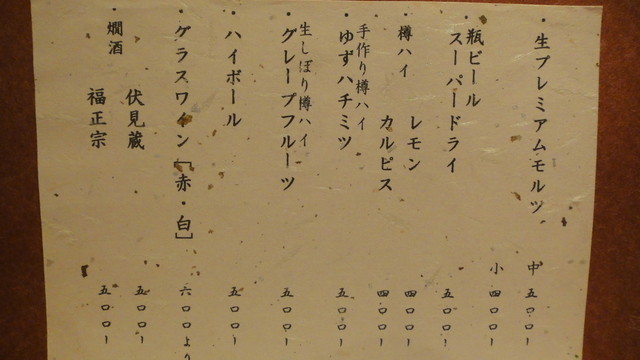 ・生プレミアムモルツ 中 五〇〇ー
小 四〇〇ー
・瓶ビール
スーパードライ 五〇〇ー
・樽ハイ
レモン 四〇〇ー
カルピス 四〇〇ー
・手作り樽ハイ
ゆずハチミツ 五〇〇ー
・生しぼり樽ハイ
グレープフルーツ 五〇〇ー
・ハイボール 五〇〇ー
・グラスワイン[赤・白] 六〇〇より
・燗酒
伏見蔵 五〇〇ー
福正宗 五〇〇ー